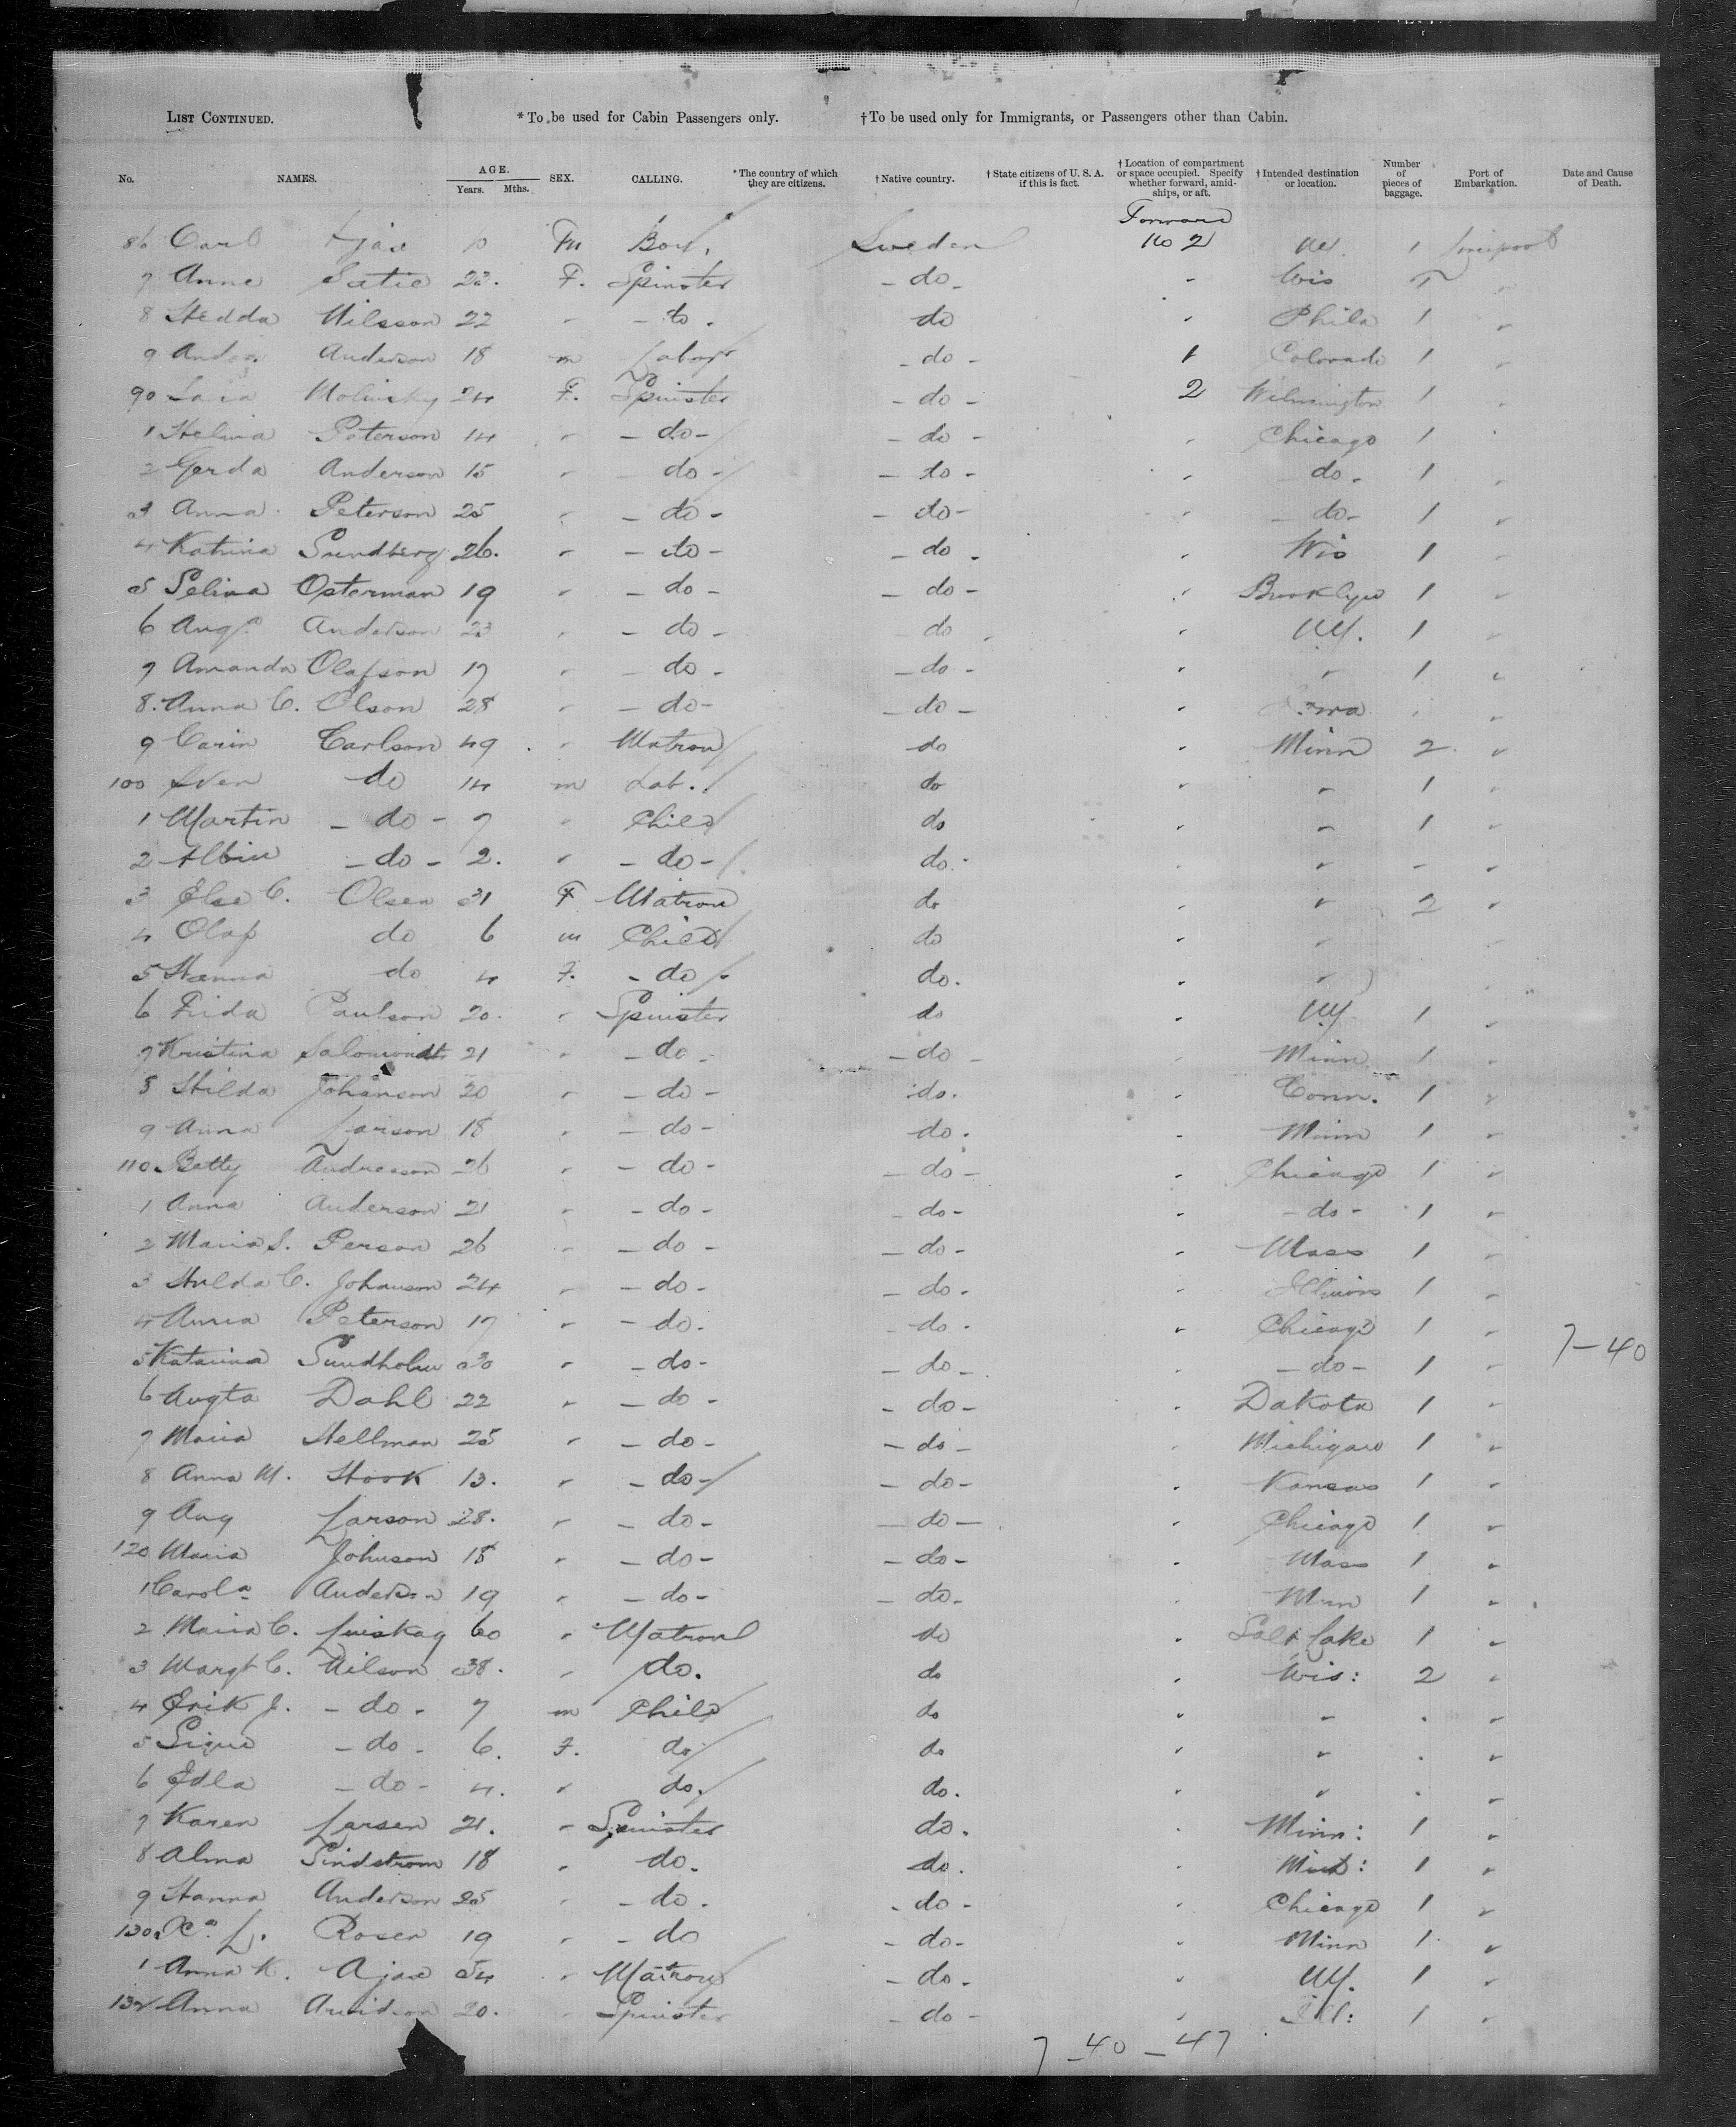 LIST CONTINUED. *To be used for Cabin Passengers only. †To be used only for Immigrants, or Passengers other than Cabin.
No. NAMES. AGE. Years. Mths. SEX. CALLING. *The country of which they are citizens. †Native country. †State citizens of U. S. A. if this is fact. †Location of compartment or space occupied. Specify whether forward, amidships, or aft. †Intended destination or location. Number of pieces of baggage. Port of Embarkation. Date and Cause of Death.
Forward
86 Carl Ajax 10 m Boy. Sweden No 2 NY. 1 Liverpool
7 Anne 22. F. Spinster - do - " Wis 1 "
8 Hedda Nilsson 22 " - do . do " Phila 1 "
9 Anderson 18 m Labor - do - 1 Colorado 1
90 24 F. Spinster - do - 2 Wilmington 1 "
1 Helina Peterson 14 " - do - - do - " Chicago 1 "
2 Gerda Anderson 15 " do - - do - " do - 1 "
3 Anna Peterson 25 " - do - - do - " - do - 1 "
4 Katrina Sundberg 26. " - do - - do - " Wis 1 "
5 Selina Osterman 19 " - do - - do - " Brooklyn 1 "
6 Augª Anderson 23 " - do - do " NY. 1 "
7 Amanda Olafson 17 " - do - - do - " " 1 "
8. Anna C. Olson 28 " - do - - do - " "
9 Carin Carlson 49 " Matron do " Minn 2 "
100 Sven do 14 m Lab. do " " 1 "
1 Martin - do - 7 " Child do " " 1 "
2 Albin - do - 2. " - do - do. " " - "
3 Else C. Olsen 31 F Matron do " " 2 "
4 Olaf do 6 m Child do " "
5 Hanna do 4 F. - do - do. " "
6 Frida Paulson 20. " Spinster do " NY 1 "
7 Kristina 21 " - do - - do - " Minn 1 "
8 Hilda Johanson 20 " - do - do. " Conn. 1 "
9 Anna Larson 18 " - do - do. " Minn 1 "
110 Betty Andreason 26 " - do - - do - " Chicago 1 "
1 Anna Anderson 21 " - do - - do - " - do - 1 "
2 Maria S. Person 26 " - do - - do - " Mass 1 "
3 Hulda C. Johanson 24 " - do - - do - " Illinois 1 "
4 Anna Peterson 17 " - do. - do - " Chicago 1 "
7-40
5 Katarina Sundholm 30 " - do - - do - " - do - 1 "
6 Augta Dahl 22 " - do - - do - " Dakota 1 "
7 Maria Hellman 25 " - do - - do - " Michigan 1 "
8 Anna M. Hook 13. " - do - - do - " Kansas 1 "
9 Aug Larson 28. " - do - - do - " Chicago 1 "
120 Maria Johnson 18 " - do - - do - " Mass 1 "
1 Carolª Anderson 19 " - do - - do - " Minn 1 "
2 Maria C. 60 " Matron do " Salt Lake 1 "
3 Margt C. Nilson 38. " do. do " Wis: 2 "
4 Erik J. - do - 7 m Child do " " . "
5 Signe - do - 6. F. do do " " . "
6 Edla - do - 4. " do. do. " " . "
7 Karen Larsen 21. " Spinster do. " Minn: 1 "
8 Alma Lindstrom 18 " do. do. " 1 "
9 Hanna Anderson 25 " - do. - do - " Chicago 1 "
130 L. Rosen 19 " - do - do - " Minn 1 "
1 Anna K. Ajax 54 " Matron - do - " NY. 1 "
132 Anna Arvidson 20. " Spinster - do - " Ill: 1 "
7-40-47